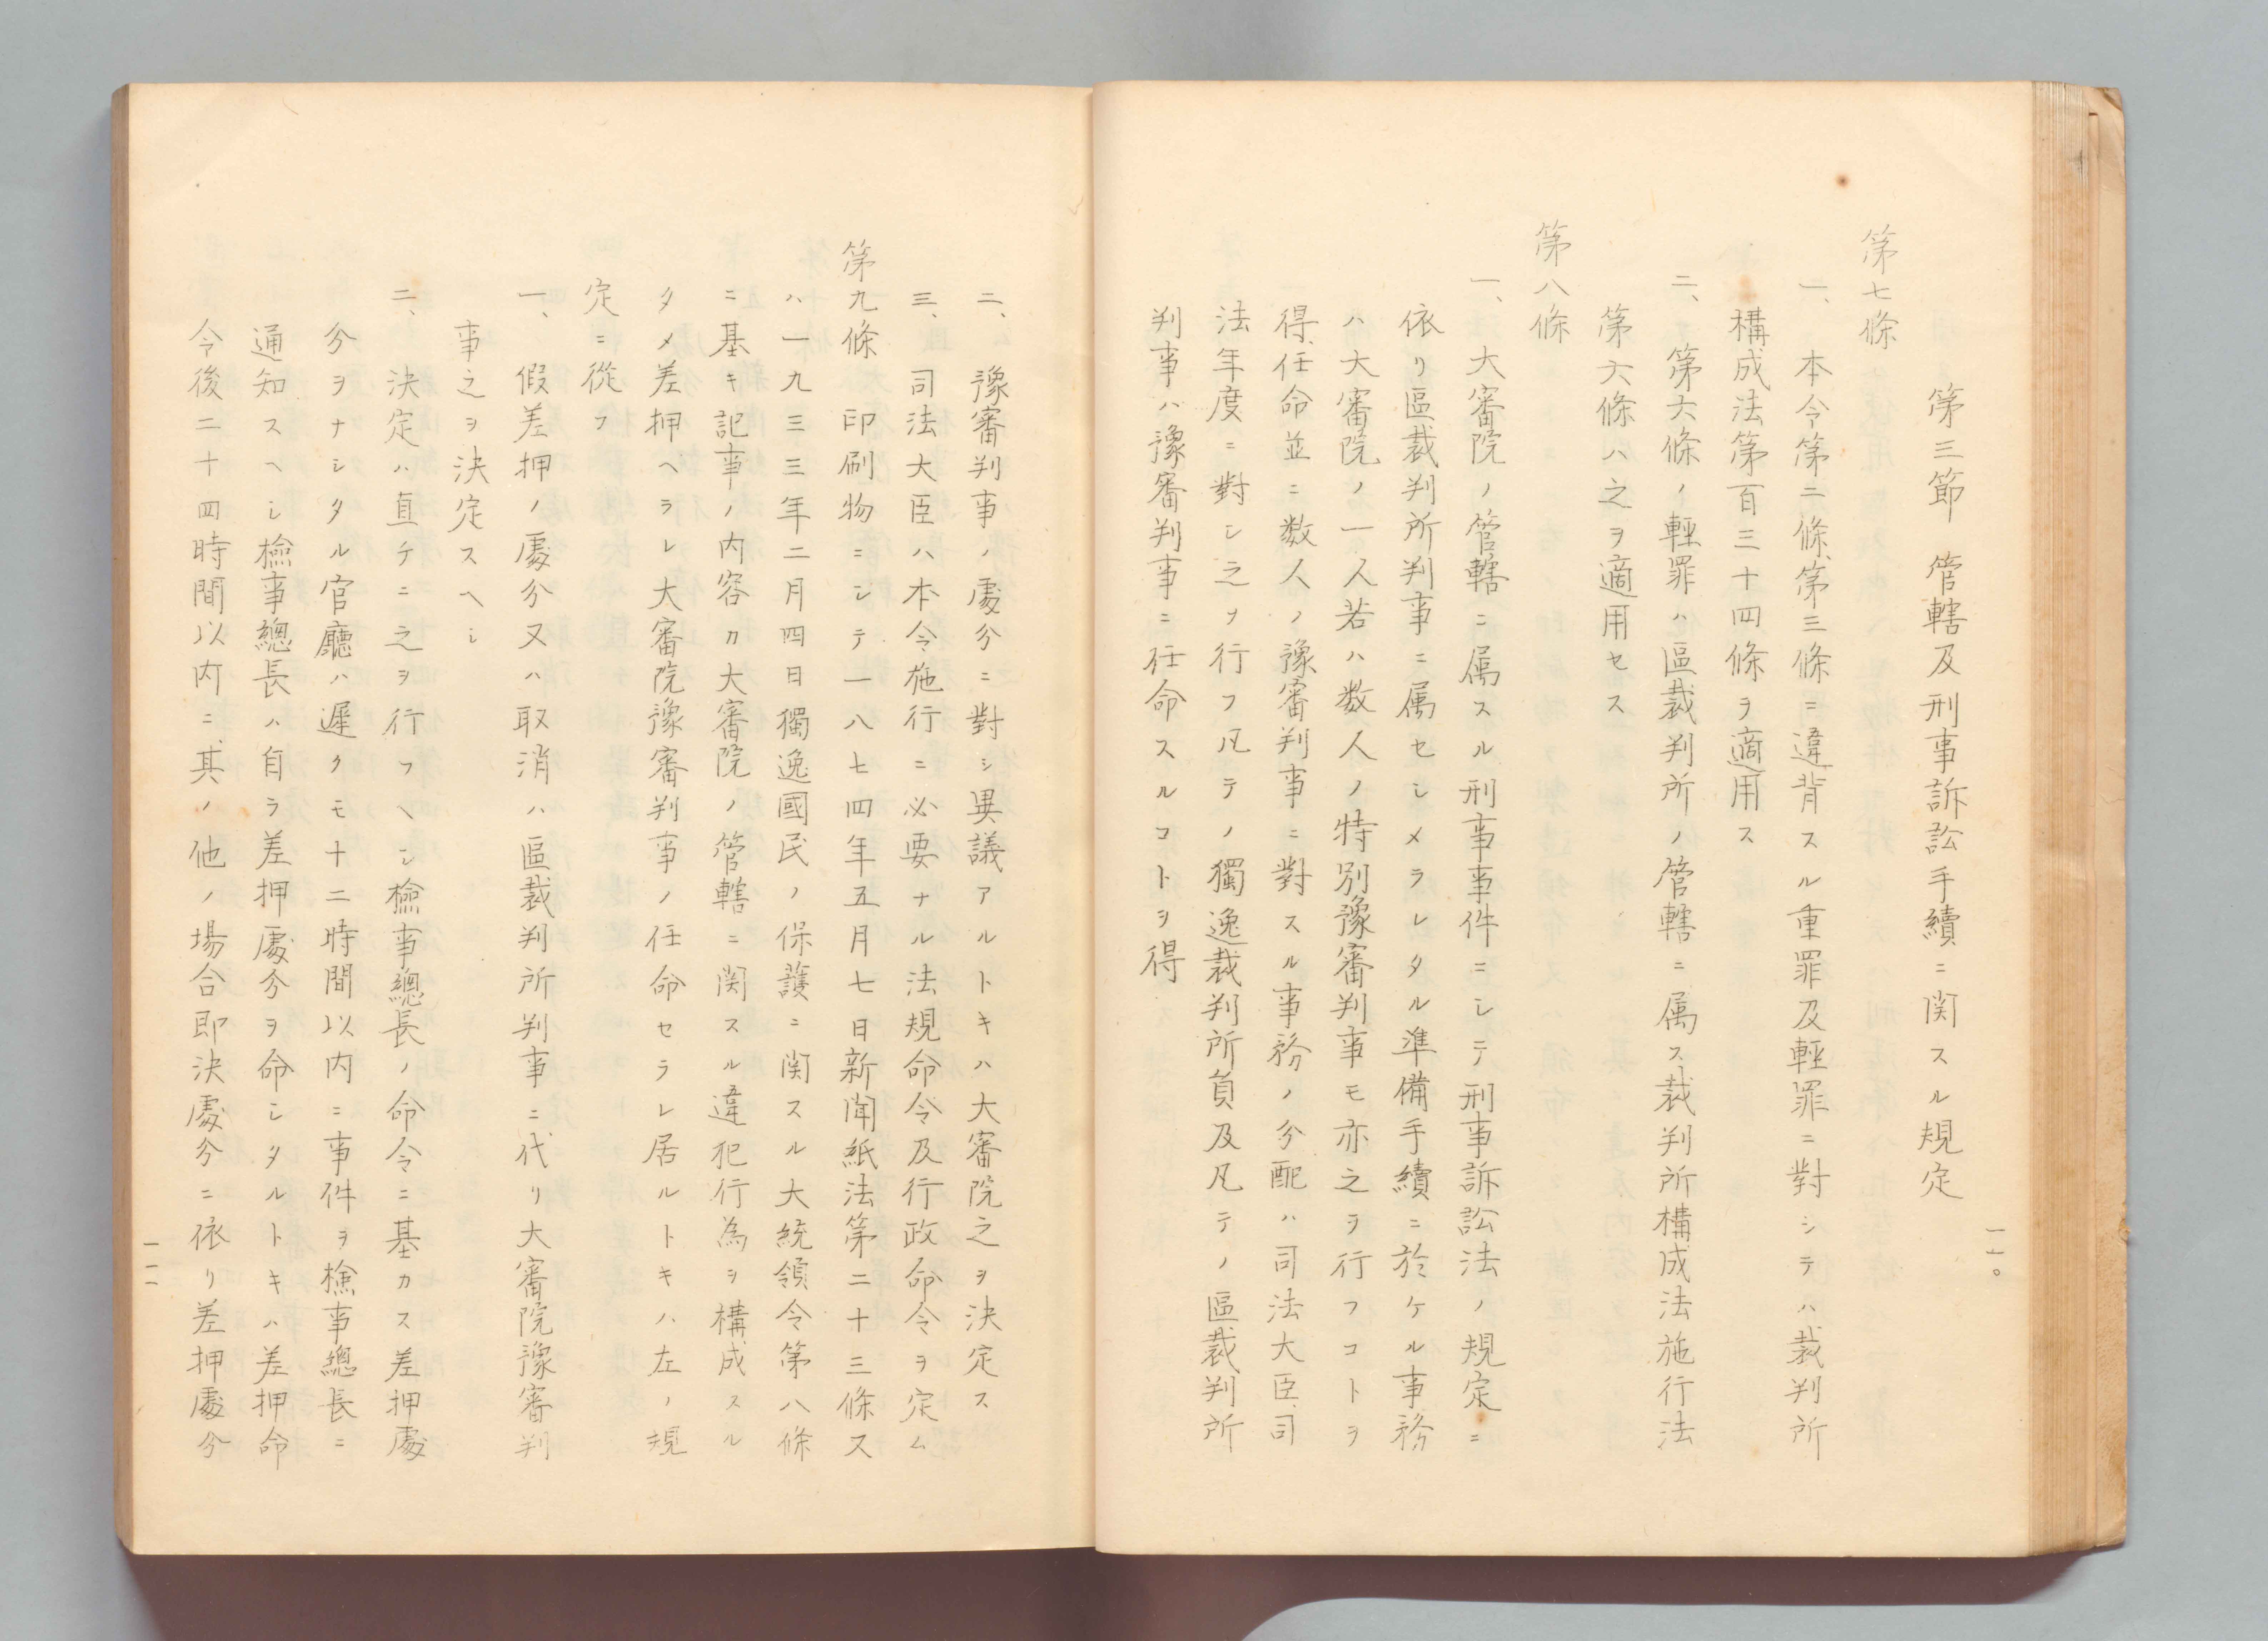 第三節　管轄及刑事訴訟手續ニ関スル規定
第七條
一、本令第二條、第三條ニ違背スル重罪及輕罪ニ對シテハ裁判所
構成法第百三十四條ヲ適用ス
二、第六條ノ輕罪ハ區裁判所ノ管轄ニ属ス裁判所構成法施行法
第六條ハ之ヲ適用セス
第八條
一、大審院ノ管轄ニ属スル刑事事件ニシテ刑事訴訟法ノ規定ニ
依リ區裁判所判事ニ属セシメラレタル準備手續ニ於ケル事務
ハ大審院ノ一人若ハ数人ノ特別豫審判事モ亦之ヲ行フコトヲ
得、任命並ニ数人ノ豫審判事ニ對スル事務ノ分配ハ司法大臣、司
法年度ニ對シ之ヲ行フ凡テノ獨逸裁判所員及凡テノ區裁判所
判事ハ豫審判事ニ任命スルコトヲ得
一一〇
二、豫審判事ノ處分ニ對シ異議アルトキハ大審院之ヲ決定ス
三、司法大臣ハ本令施行ニ必要ナル法規命令及行政命令ヲ定ム
第九條　印刷物ニシテ一八七四年五月七日新聞紙法第二十三條ス
ハ一九三三年二月四日獨逸國民ノ保護ニ関スル大統領令第八條
ニ基キ記事ノ内容カ大審院ノ管轄ニ関スル違犯行為ヲ構成スル
タメ差押ヘラレ大審院豫審判事ノ任命セラレ居ルトキハ左ノ規
定ニ從フ
一、假差押ノ處分又ハ取消ハ區裁判所判事ニ代リ大審院豫審判
事之ヲ決定スヘシ
二、決定ハ直チニ之ヲ行フヘシ檢事總長ノ命令ニ基カス差押處
分ヲナシタル官廳ハ遲クモ十二時間以内ニ事件ヲ檢事總長ニ
通知スヘシ檢事總長ハ自ラ差押處分ヲ命シタルトキハ差押命
令後二十四時間以内ニ其ノ他ノ場合即決處分ニ依リ差押處分
一一一